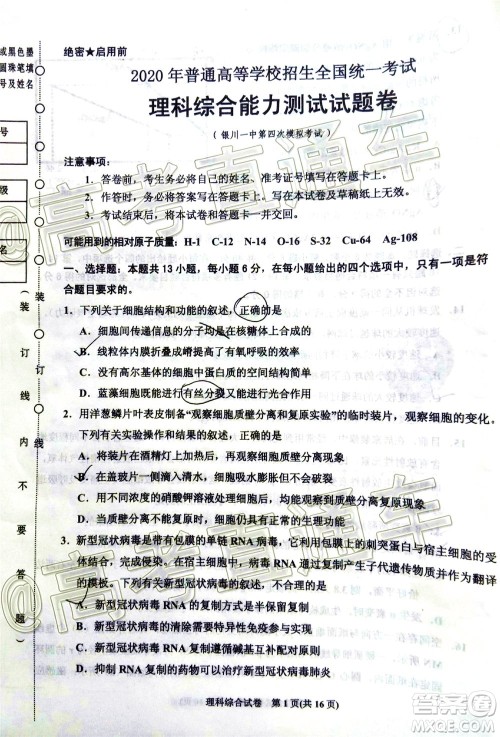 或黑色墨
圆珠笔填
号及姓名
绝密★启用前
2020 年普通高等学校招生全国统一考试
理科综合能力测试试题卷
（银川一中第四次模拟考试）
注意事项：
1．答卷前，考生务必将自己的姓名、准考证号填写在答题卡上。
2．作答时，务必将答案写在答题卡上。写在本试卷及草稿纸上无效。
3．考试结束后，将本试卷和答题卡一并交回。
可能用到的相对原子质量：H-1 C-12 N-14 O-16 S-32 Cu-64 Ag-108
一、选择题：本题共13小题，每小题6分，在每小题给出的四个选项中，只有一项是符
合题目要求的。
1．下列关于细胞结构和功能的叙述，正确的是
A．细胞间传递信息的分子均是在核糖体上合成的
B．线粒体内膜折叠成嵴提高了有氧呼吸的效率
C．没有高尔基体的细胞中蛋白质的空间结构不能形成
D．蓝藻细胞既能进行有丝分裂又能进行光合作用
2．用洋葱鳞片叶表皮制备“观察细胞质壁分离和复原实验”的临时装片，观察细胞的变化。
下列有关实验操作和结果的叙述，正确的是
A．将装片在酒精灯上加热后，再观察质壁分离现象
B．在盖玻片一侧滴入清水，细胞吸水膨胀但不破裂
C．用不同浓度的硝酸钾溶液处理后，均能观察到质壁分离复原现象
D．当质壁分离不能复原时，细胞仍具正常生理功能
3．新型冠状病毒是带有包膜的单链 RNA 病毒，通过包膜上的刺突蛋白与宿主细胞受
体结合，侵染宿主细胞。新型冠状病毒 RNA 通过复制产生子代遗传物质并作为翻译
的模板。下列有关新型冠状病毒的叙述，不合理的是
A．新型冠状病毒 RNA 的复制方式是半保留复制
B．新型冠状病毒的清除需要特异性免疫参与实现
C．新型冠状病毒 RNA 翻译时遵循碱基互补配对原则
D．抑制 RNA 复制的药物可以治疗新型冠状病毒肺炎
理科综合试卷 第 1 页(共 16 页)
号
级
名
（装订线内不要答题）
装订线
@高考直通车
@高考直通车